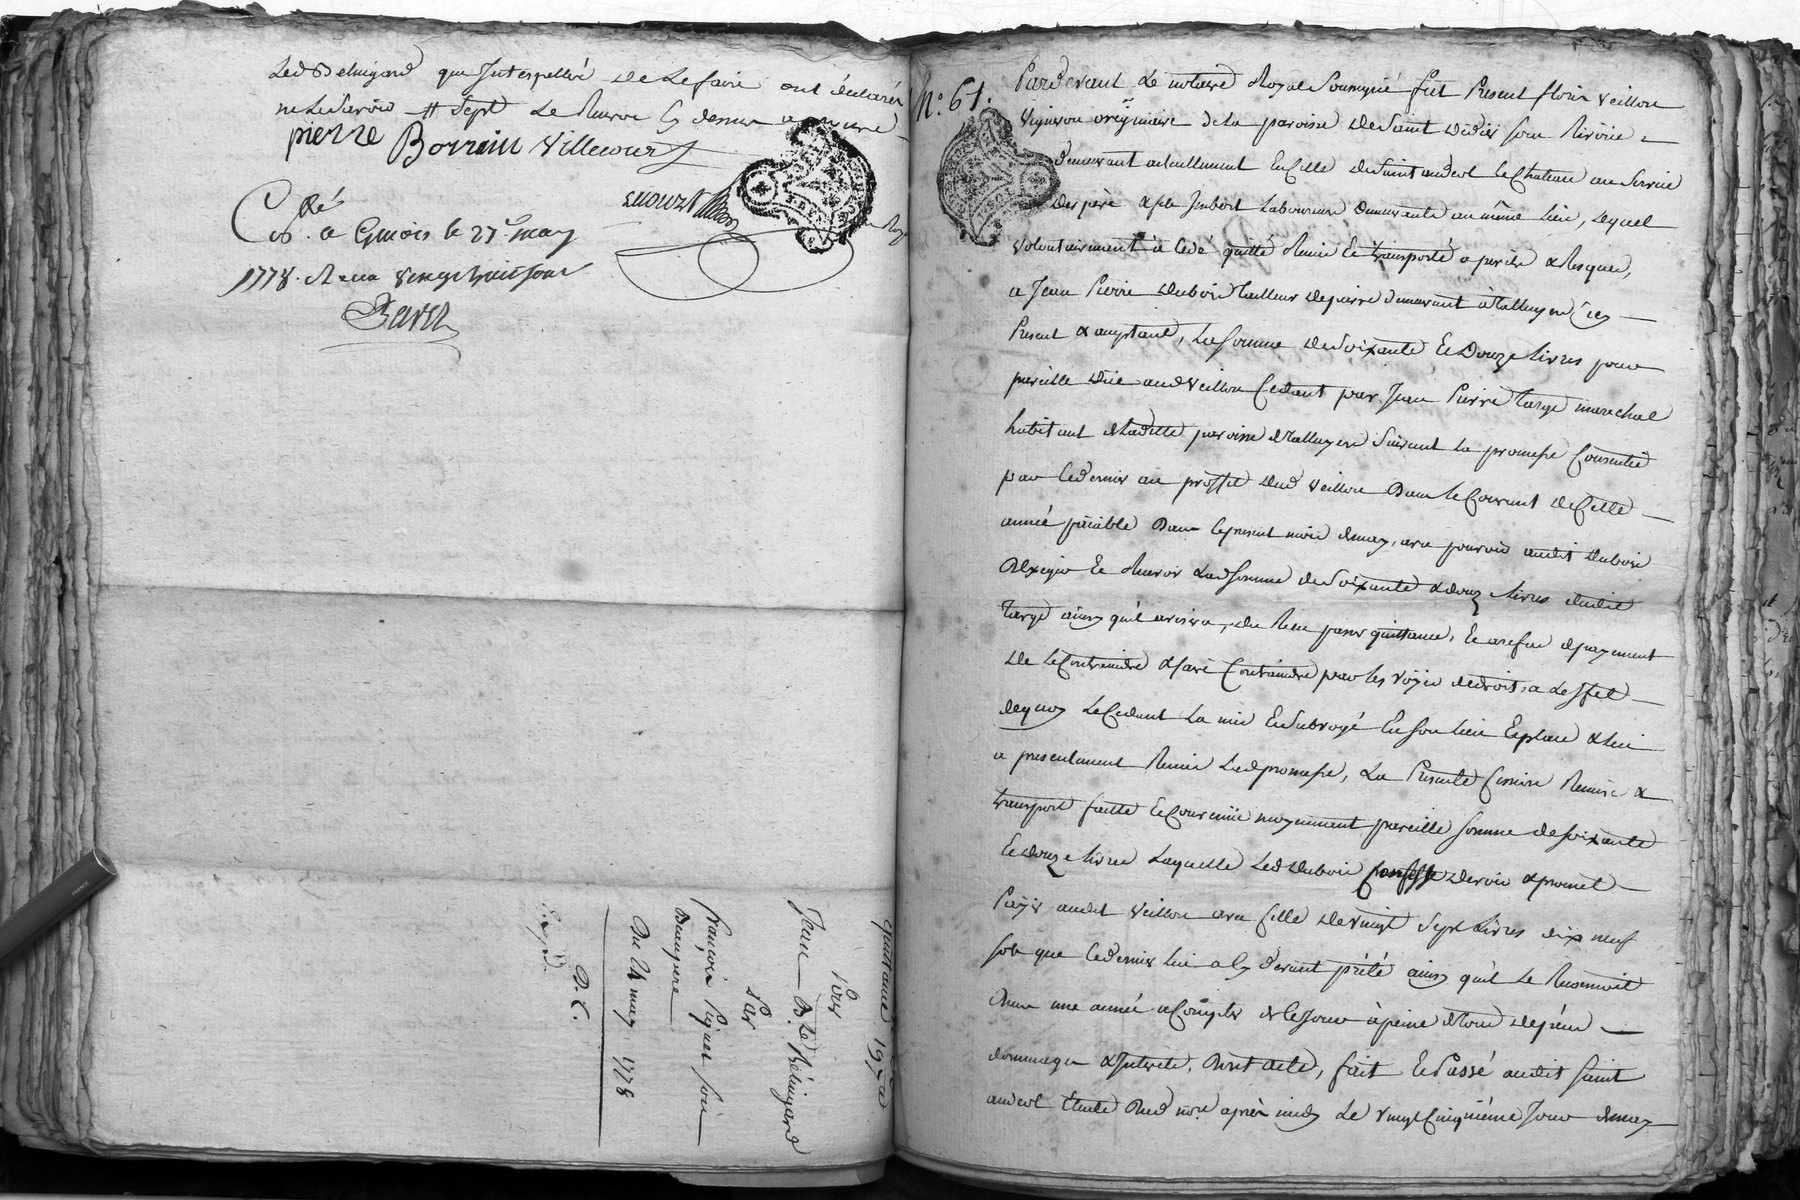 Led Belingard que Interpellée de Le faire ont déclaré
ne Le Savoir # Sept Le Renvoy cy dessus approuvé
pierre Borrin Villecourt
Collé a Givois le 27e may
1778. Reçu vingt huit sous
N° 61.
Pardevant Le notaire Royal Soussigné fut Present fleury Veillon
Vigneron originaire de la paroisse de Saint Didier sous Riverie
demeurant actuellement en celle de Saint andeol Le Chateau au Service
des père & fils Laboureurs demeurants au même Lieu, Lequel
volontairement à Cédé quitté Remis et transporté a perils & Risques,
a Jean Pierre Dubois tailleur de pierre demeurant à talluyers icy
Present & acceptant, La Somme de Soixante et Douze Livres pour
pareille Düe aud Veillon Cedant par Jean Pierre Targe marechal
habitant de Ladite paroisse de talluyers Suivant La promesse Consentie
par Ce dernier au proffit dud Veillon Dans le Courant de Cette
année païable Dans le present mois de may, avec pouvoir audit Dubois
d'Exiger et Recevoir Lad Somme de Soixante & douze Livres dudit
targe ainsy qu'il avisera, du Reçu passer quittance, et a refus de payement
de Le Contraindre & faire Contraindre par les voÿes de droits, a L'effet
de quoy Le Cedant La mis et Subrogé En Son Lieu et place & Lui
a presentement Remis Lad promesse, La Presente Cession Remise &
transport faitte et Convenüe moyennant pareille Somme de Soixante
et Douze Livres Laquelle Led Dubois Confesse Devoir & promet
Païer audit Veillon avec Celle de vingt Sept Livres dix neuf
sols que Ce dernier Lui a cy devant prêté ainsy qu'il Le Reconnoit
Dans une année a Compter de Ce Jour à peine de tous depens
dommages & Interets, Dont acte, fait et Passé audit Saint
andeol Etude Dud nore après midy Le vingt Cinquième Jour de may
quittance 197#
Pour
Jean B. Led Bélingard
Par
françois Piguet son
Beaupere
Du 24 may 1778
D. C.
Expd.